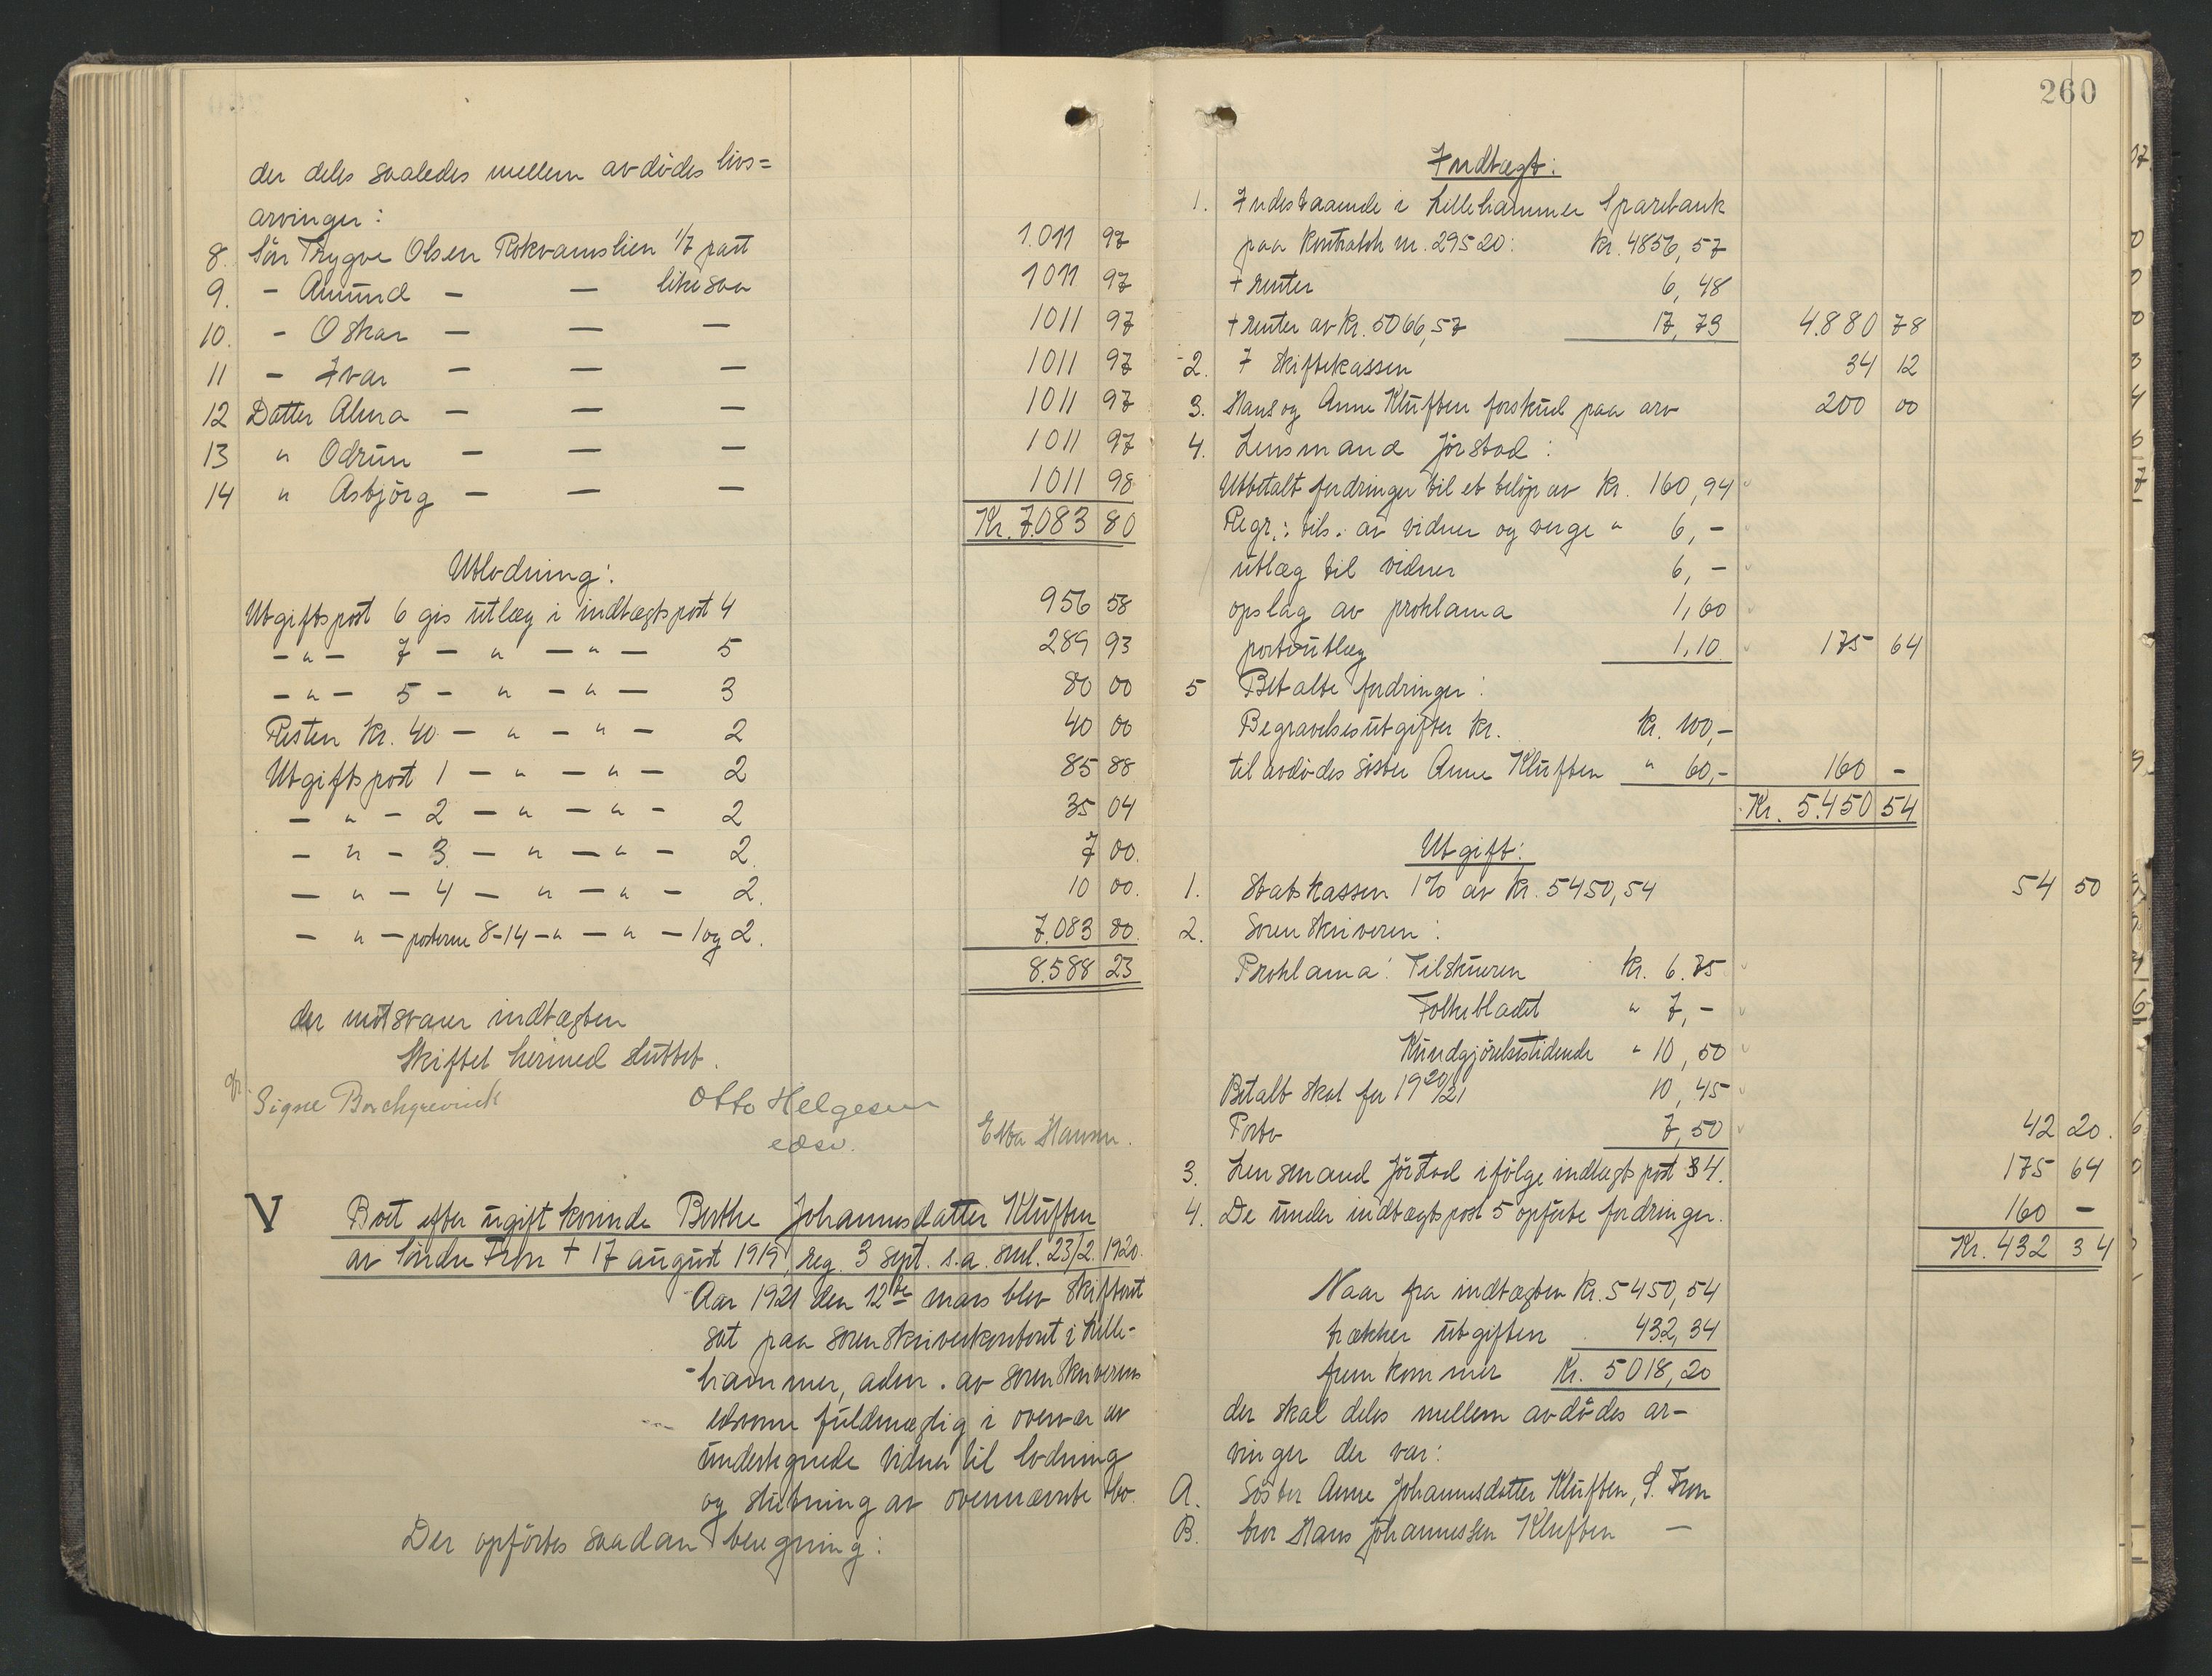 der deles saaledes mellem avdödes livs=
arvinger:
8. Sön Trygve Olsen Rokvamslien 1/7 part 1.011 97
9. - Amund - - likesaa 1011 97
10. - Oskar - - - 1011 97
11 - Ivar - - - 1011 97
12 Datter Alma - - - 1011 97
13 " Odrun - - - 1011 97
14 " Asbjörg - - - 1011 98
Kr. 7.083 80
Utlodning:
Utgiftspost 6 gis utlæg i indtægtspost 4 956 58
-"- 7 - " - " - 5 289 93
-"- 5 - " - " - 3 80 00
Resten Kr. 40 - " - " - 2 40 00
Utgiftspost 1 - " - " - 2 85 88
- " - 2 - " - " - 2 35 04
- " - 3 - " - " - 2. 7 00.
- " - 4 - " - " - 2. 10 00.
- " - posterne 8-14 - " - " - 1 og 2. 7.083 80.
8.588 23
der motsvarer indtægten
Skiftet hermed sluttet.
Signe Borchgrevink Otto Helgesen Ebba Hansen.
edsv.
V Boet efter ugift kvinde Berthe Johannesdatter Kluften
av Söndre Fron † 17 august 1919, reg. 3 sept. s.a. sml. 23/2. 1920.
Aar 1921 den 12te mars blev skifteret
sat paa sorenskriverkontoret i Lille-
hammer, adm. av sorenskriverens
edsvorne fuldmægtig i overvær av
undertegnede vidner til lodning
og slutning av ovennævnte bo.
Der opförtes saadan beregning:
260
Indtægt:
1. Indestaaende i Lillehammer Sparebank
paa Kontrabok nr. 29520: Kr. 4856,57
+ renter 6,48
+ renter av Kr. 5066,57 17,73 4.880 78
2. I skiftekassen 34 12
3. Hans og Anne Kluften forskud paa arv 200 00
4. Lensmand Jörstad:
Utbetalt fordringer til et belöp av Kr. 160,94
Regr.: tils. av vidner og verge " 6,-
utlæg til vidner 6,-
opslag av proklama 1,60
portoutlæg 1,10. 175 64
5 Betalte fordringer:
Begravelsesutgifter Kr. Kr. 100,-
til avdödes söster Anne Kluften " 60,- 160 -
Kr. 5.450 54
Utgift:
1. Statskassen 1% av Kr. 5450,54 54 50
2. Sorenskriveren:
Proklama: Tilskueren Kr. 6.75
Folkebladet " 7,-
Kundgjörelsestidende " 10,50
Betalt skat for 1920/21 10,45
Porto 7,50 42 20.
3. Lensmand Jörstad ifölge indtægtspost 4. 175 64
4. De under indtægtspost 5 opförte fordringer. 160 -
Kr. 432 34
Naar fra indtægten Kr. 5450,54
trækkes utgiften 432,34
fremkommer Kr. 5018,20
der skal deles mellem avdödes ar-
vinger der var:
A. Söster Anne Johannesdatter Kluften, S. Fron
B. bror Hans Johannessen Kluften -